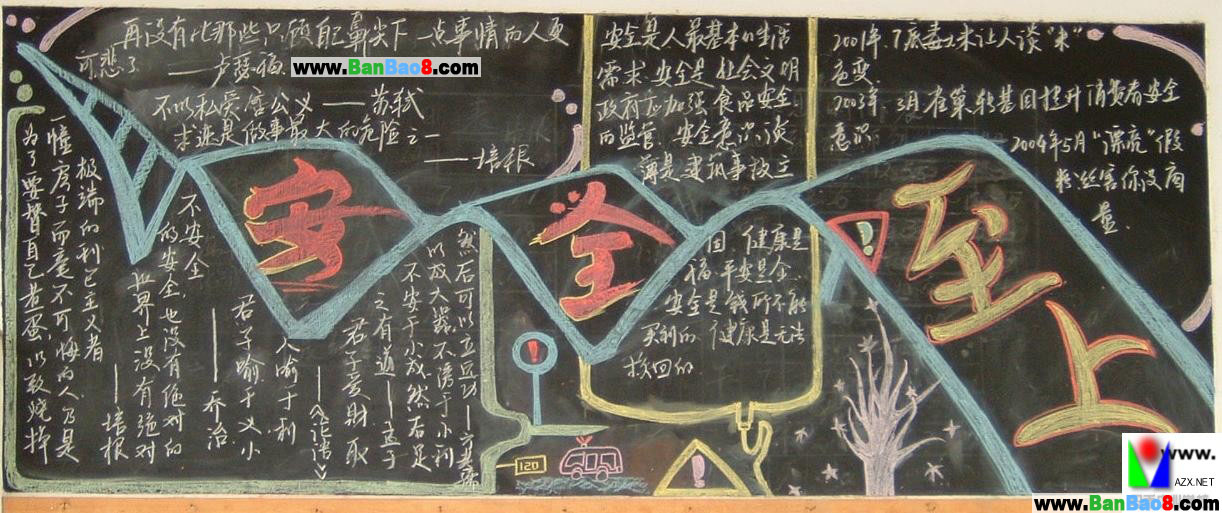 再没有比那些只顾自己鼻尖下一点事情的人更
可悲了 ——卢瑟福
www.BanBao8.com
不以私爱害公义——苏轼
求逃是做事最大的危险之一
——培根
安全是人最基本的生活
需求.安全是社会文明
政府应加强食品安全
的监管.安全意识淡
薄是建筑事故主
因.健康是
福.平安是金.
安全是钱所不能
买到的.健康是无法
换回的
2001年.7底毒大米让人谈"米"
色变.
2003年.3月在巢轶基因提升消费者安全
意识
2004年5月"漂亮"假
粉丝害你没商
量.
安全至上
极端的利己主义者
一幢房子而毫不可悔的人乃是
为了要替自己煮蛋,以致烧掉
——培根
不安全
的安全,也没有绝对的
世界上没有绝对
——乔治
君子喻于义小
人喻于利
——《论语》
君子爱财取
之有道——孟子
不安于小成,然后足
以成大器.不诱于小利
然后可以立远功——方孝孺
120
www.
AZX.NET
www.BanBao8.com